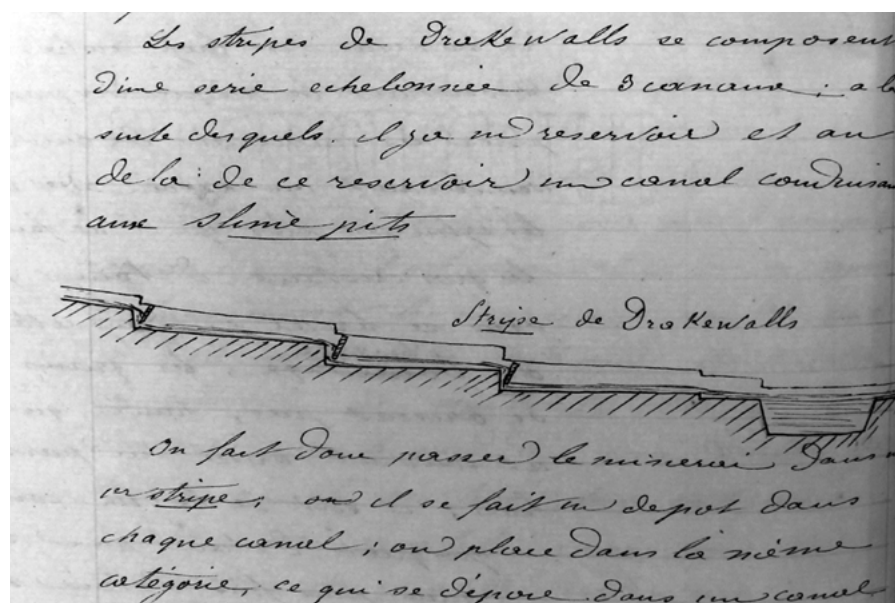 Les stripes de Drakewalls se composent
d'une serie echelonnée de 3 canaux ; a la
suite desquels. il y a un reservoir et au
dela de ce reservoir un canal conduisant
aux slime pits
Stripe de Drakewalls
On fait donc passer le minerai dans
ce stripe ; où il se fait un depot dans
chaque canal ; on place dans la même
catégorie, ce qui se dépose dans un canal